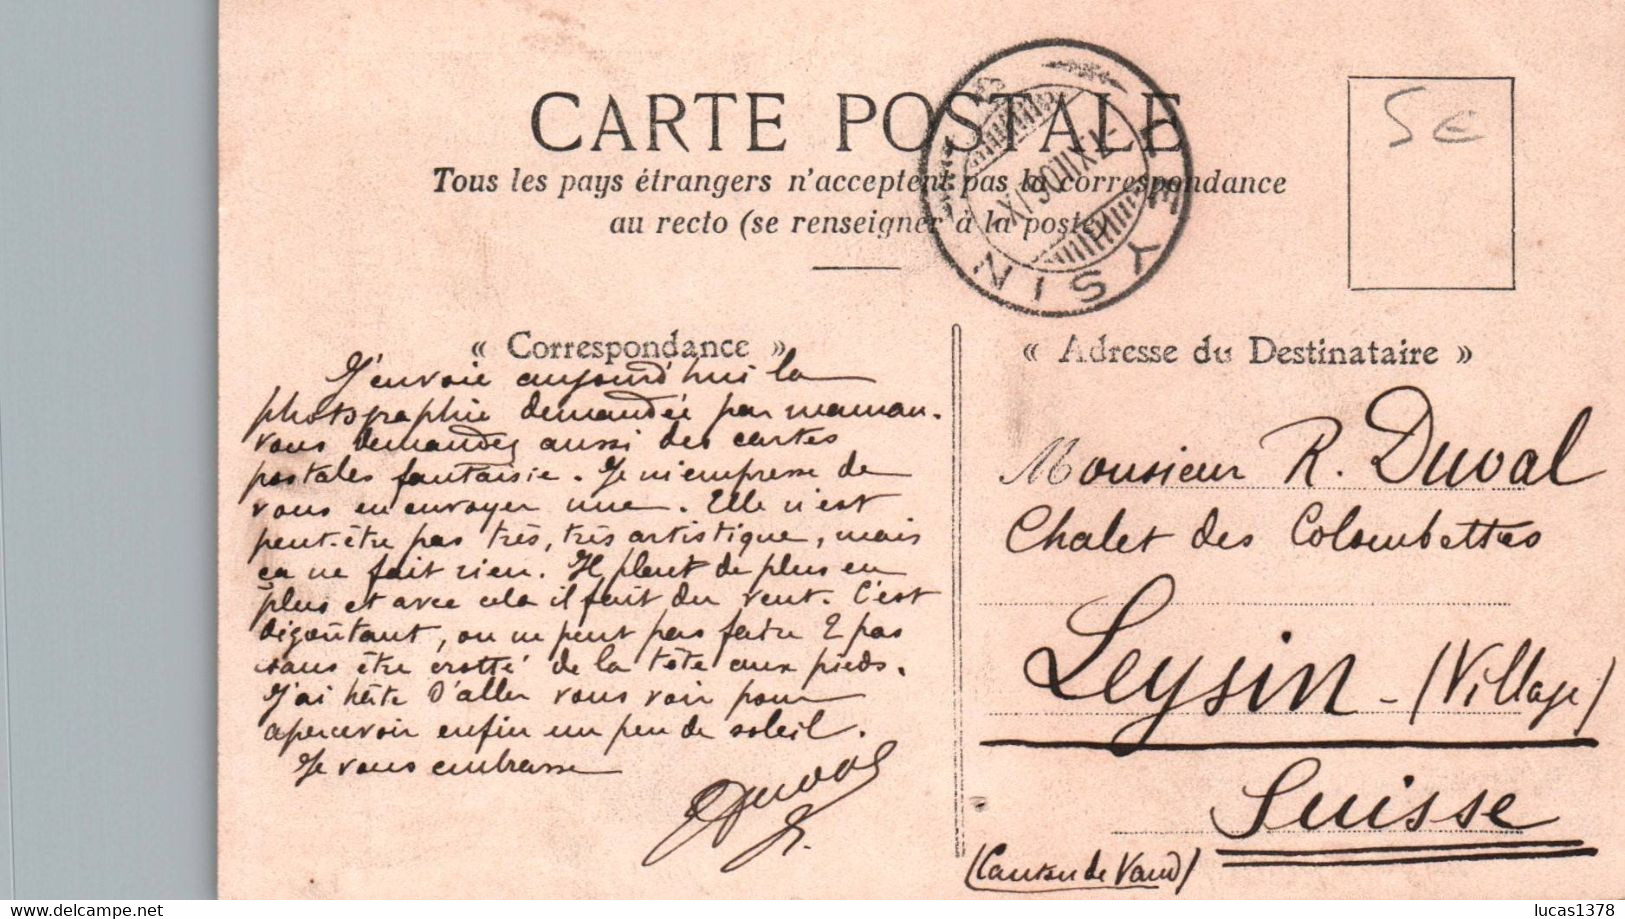 CARTE POSTALE
Tous les pays étrangers n'acceptent pas la correspondance
au recto (se renseigner à la poste)
LEYSIN
5€
« Correspondance »
J'envoie aujourd'hui la
photographie demandée par maman.
vous demandez aussi des cartes
postales fantaisie. Je m'empresse de
vous en envoyer une. Elle n'est
peut-être pas très, très artistique, mais
ça ne fait rien. Il pleut de plus en
plus et avec cela il fait du vent. C'est
dégoûtant, on ne peut pas faire 2 pas
sans être crotté de la tête aux pieds.
J'ai hâte d'aller vous voir pour
apercevoir enfin un peu de soleil.
Je vous embrasse
Duval
« Adresse du Destinataire »
Monsieur R. Duval
Chalet des Colombettes
Leysin - (Village)
Suisse
(Canton de Vaud)
delcampe.net
lucas1378